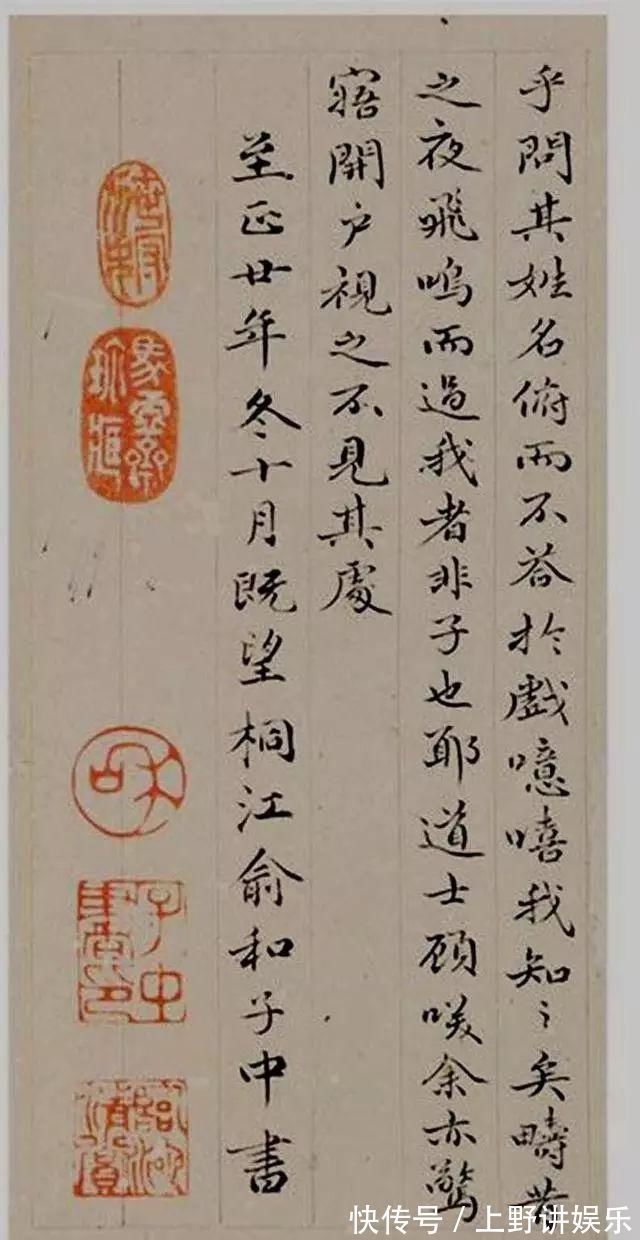 乎問其姓名俯而不荅於戲噫嘻我知〻矣疇昔
之夜飛鳴而過我者非子也耶道士顧咲余亦驚
寤開户視之不見其處
至正廿年冬十月既望桐江俞和子中書
和
子中
快传号/上野讲娱乐